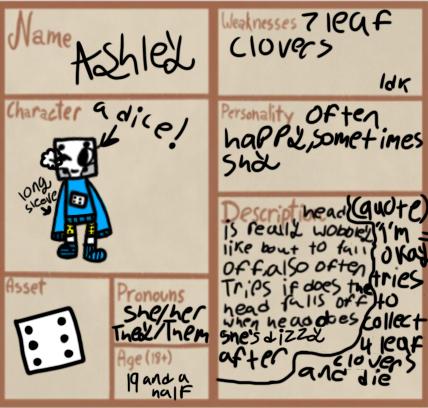 Name
Ashley
Weaknesses 7 leaf
clovers
Idk
Character a dice!
long
sleave
Personality often
happy, sometimes
shy
Description head
is really wobbley
like bout to fall
off. also often
Trips if does the
head falls off
when head does
she's dizzy
after
(quote)
I'm
okay
tries
to
collect
4 leaf
clovers
and die
Asset
Pronouns
She/her
They/Them
Age (18+)
19 and a
half